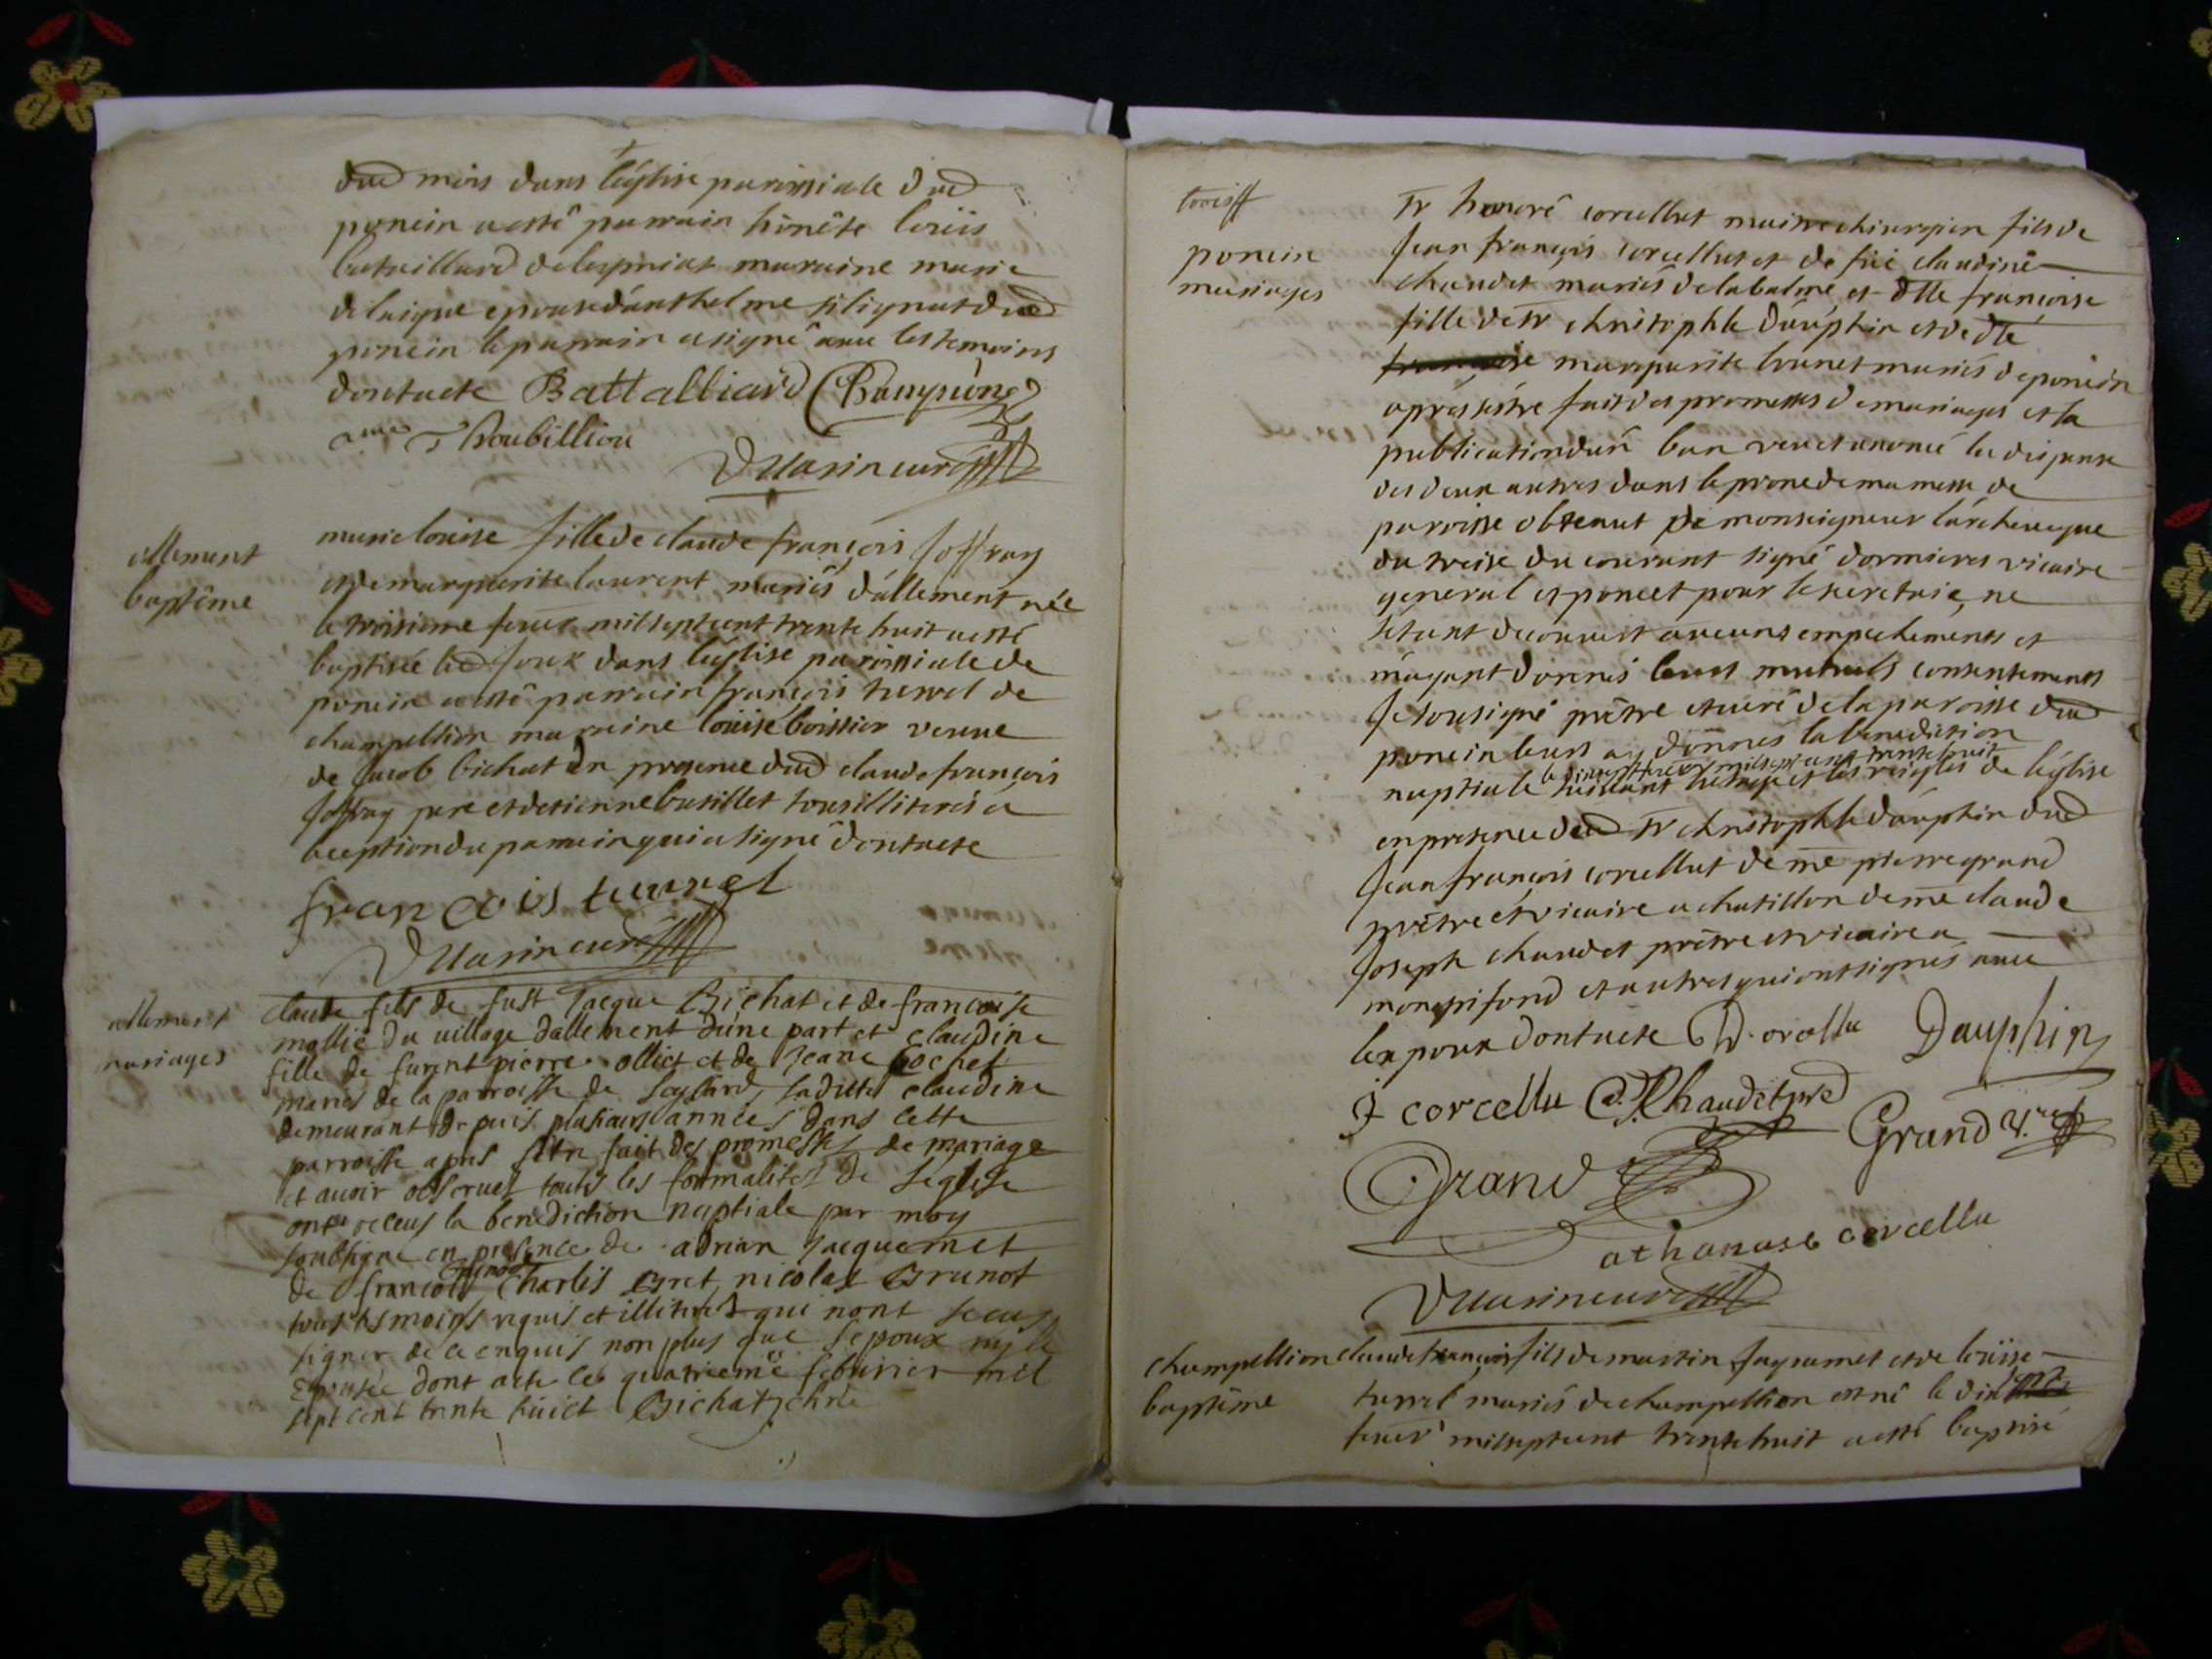 dud mois dans léglise parroissiale dud
poncin a esté parrain honête loüis
bataillard de leymiat maraine marie
delaigue epouse danthelme silignat dud
poncin le parrain a signé avec les temoins
dont acte Battalliard
Roubillion
Vuarin curé
allement
baptême
marie louise fille de claude françois Joffray
et de marguerite laurent mariés dállement née
le troisieme feuer mil sept cent trente huit a esté
baptisée led Jour dans léglise paroissiale de
poncin a esté parrain françois turrel de
champellion maraine loüise boissier veuue
de Jacob bichat En presence dud claude françois
Joffray pere et detienne batillet tous illiterés a
lexeption du parrain qui a signé dont acte
francois turrel
Vuarin curé
allement
mariages
claude fils de fust Jacque Bichat et de francoise
mollie du uillage dallement dune part et claudine
fille de furent pierre olliet et de Jeane Cochet
mariés de la parroisse de laditte claudine
demeurant depuis plusieurs années dans cette
parroisse apres sétre fait des promesses de mariage
et auoir obserués touttes les formalites de léglise
ont receus la benediction nuptiale par moy
soubsigné en presence de adrian Jacquemet
de francois Charles Gret nicolas Brunot
tous tesmoins requis et illiterés qui nont sceus
signer de ce enquis non plus que lepoux ny le
Epousée dont acte ce quatrieme feburier mil
sept cent trente huict Bichat
poncin
mariages
Sr honoré corcellut maitre chirurgien fils de
Jean françois corcellut et de füe claudine
chaudet mariés de labalme et dlle françoise
fille de Sr christophle dauphin et de dlle
marguerite brunet mariés de poncin
aprés sêstre fait des promesses de mariages et la
publication dun ban veu et anoncé la dispense
des deux autres dans le prone de ma messe de
paroisse obtenut de monseigneur lárcheueque
du treise du courant signé dormieres vicaire
general et poncet pour le secretaire, ne
sétant decouuert aucuns empechements et
máyant donnés leurs mutuels consentements
Je sousigné prêtre et curé de la paroisse dud
poncin leurs ay donnés la benediction
le vingt feuer mil sept cent trente huit
nuptiale suiuant lusage et les reigles de léglise
en presence dud Sr christophle dauphin dud
Jean françois corcellut de mre pierre grand
prêtre et vicaire a chatillon de mre claude
Joseph chaudet prêtre et vicaire a
mongrifond et autres qui ont signés auec
lepoux dont acte Dauphin
J corcellu Chaudet
Grand
Grand
athanase corcellu
Vuarin curé
champellion
baptême
claude françois fils de martin Jagramet et de loüise
turrel mariés de champellion est né le dix
feuer mil sept cent trente huit a esté baptisé